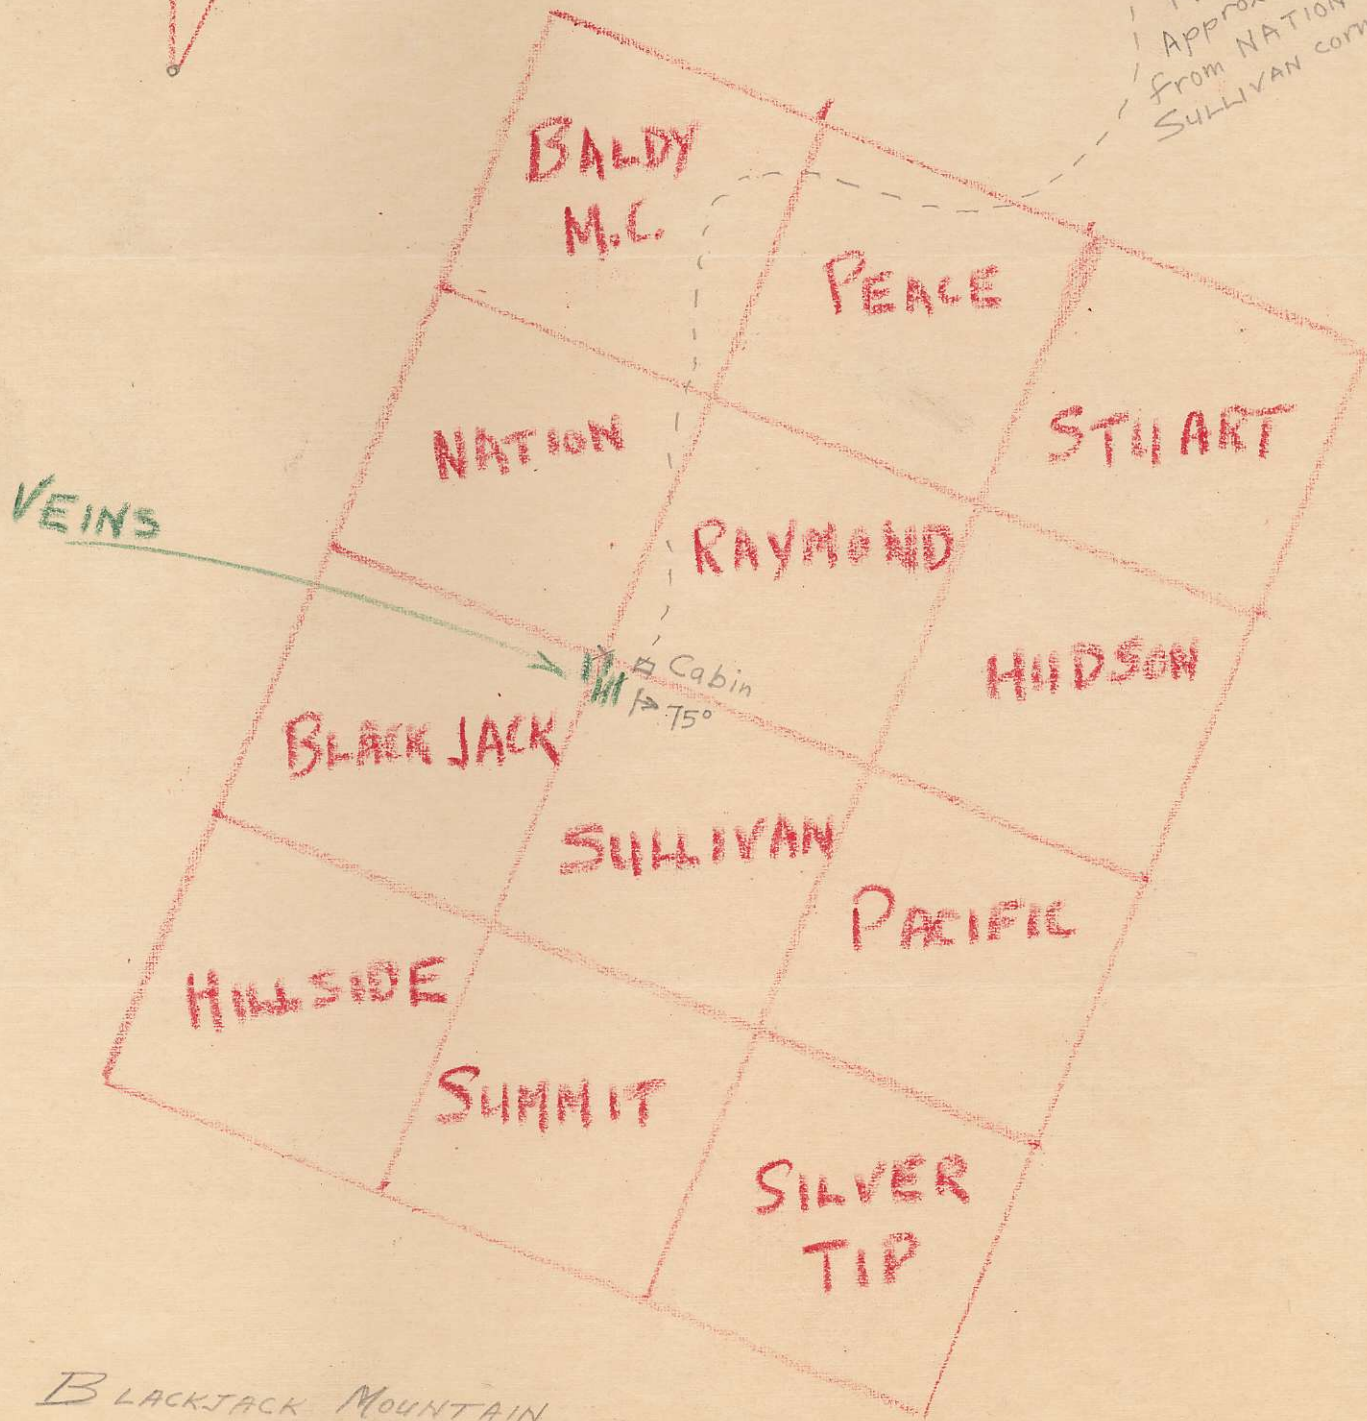 Approx
from NATION
SULLIVAN corn
BALDY
M.C.
PEACE
STUART
NATION
VEINS
RAYMOND
HUDSON
Cabin
75°
BLACK JACK
SULLIVAN
PACIFIC
HILLSIDE
SUMMIT
SILVER
TIP
BLACKJACK MOUNTAIN